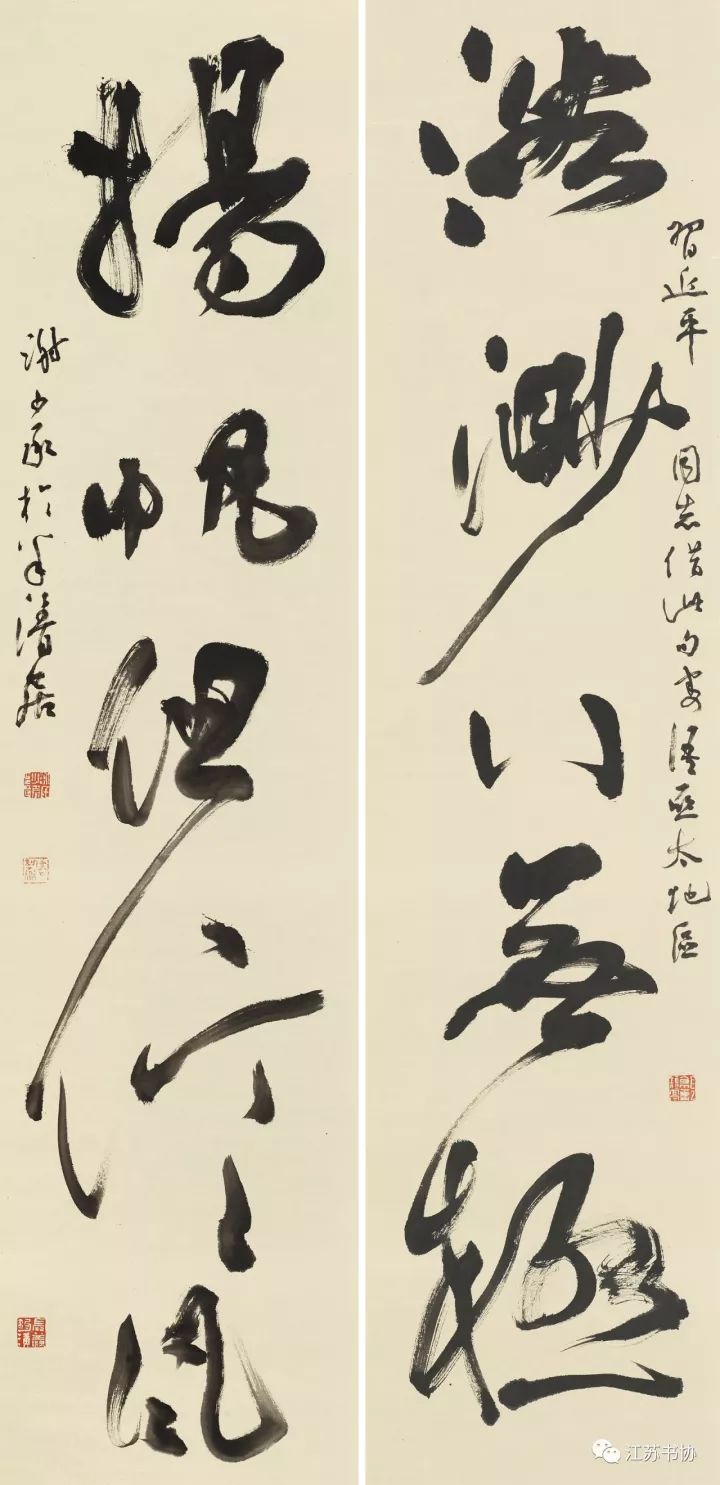 習近平同志借此句寄語亞太地區
浩渺行無極
揚帆但信風
謝少承於半潛居
江苏书协